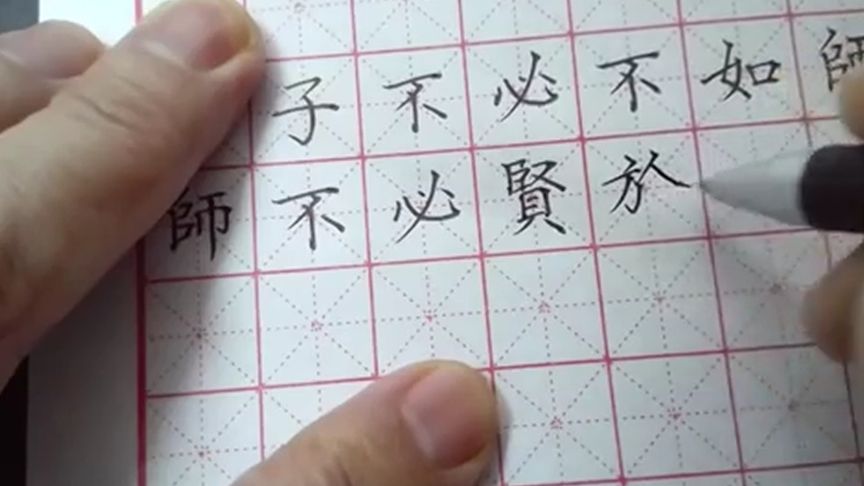 子不必不如師
師不必賢於